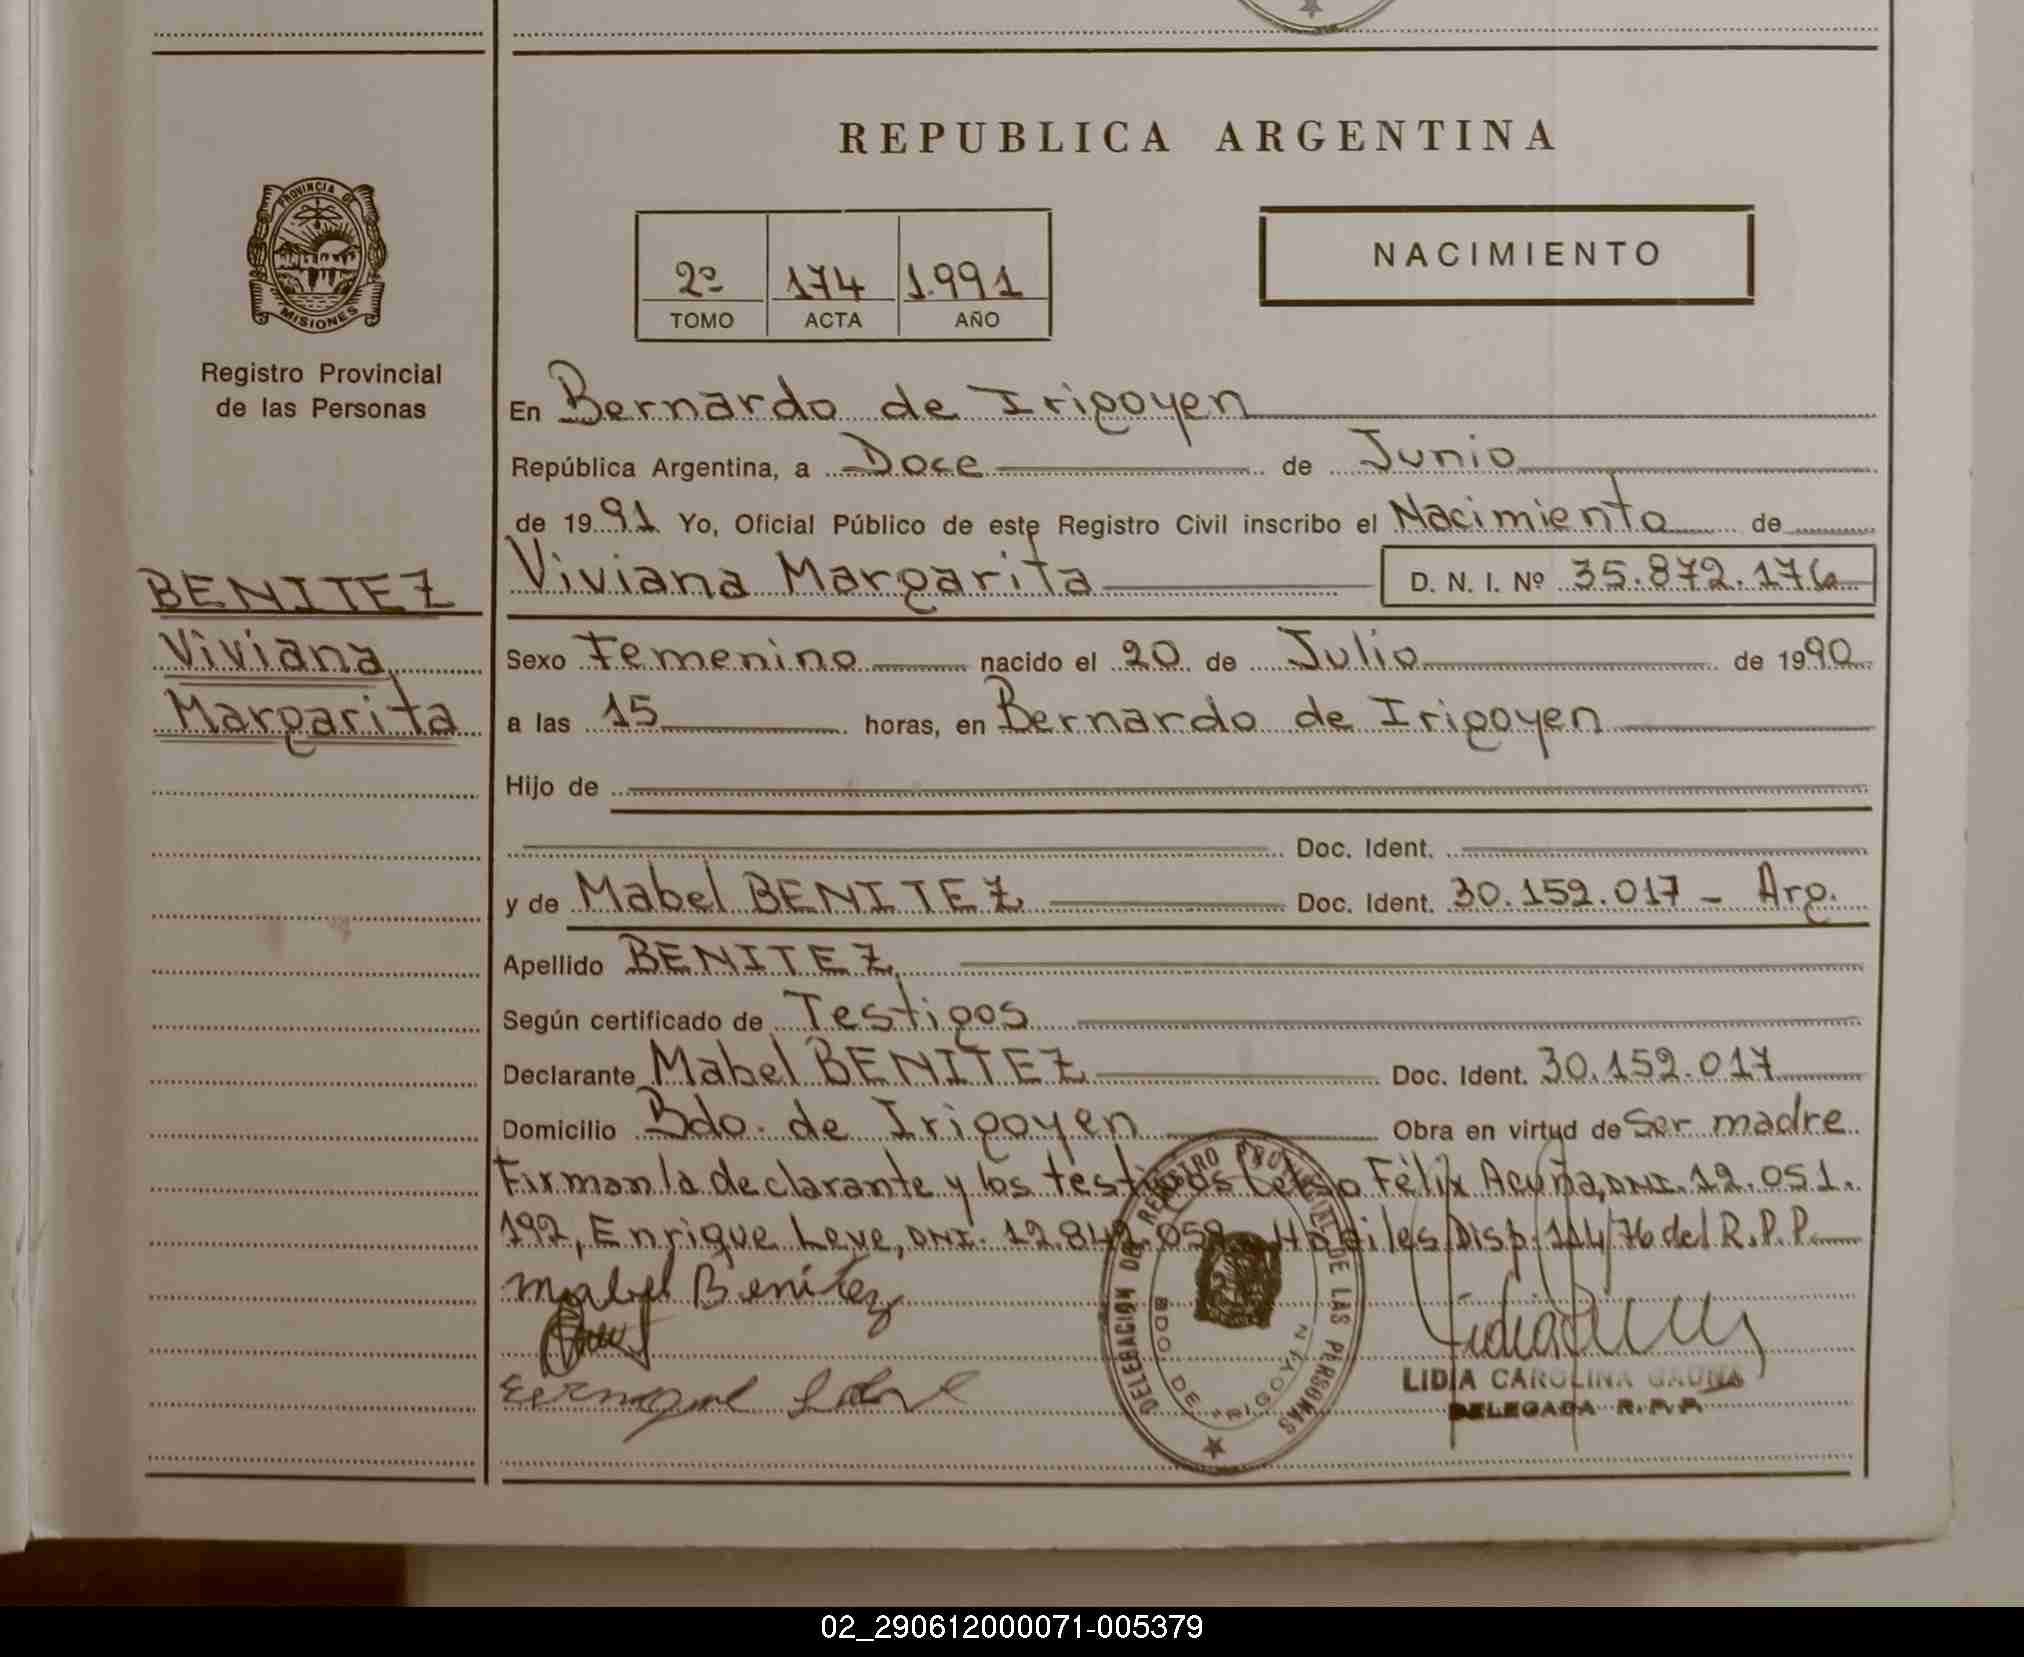 REPUBLICA ARGENTINA
PROVINCIA DE
MISIONES
Registro Provincial
de las Personas
2º 174 1.991
TOMO ACTA AÑO
NACIMIENTO
En Bernardo de Irigoyen
República Argentina, a Doce de Junio
de 1991 Yo, Oficial Público de este Registro Civil inscribo el Nacimiento de
Viviana Margarita D. N. I. Nº 35.872.176
BENITEZ
Viviana
Margarita
Sexo Femenino nacido el 20 de Julio de 1990
a las 15 horas, en Bernardo de Irigoyen
Hijo de
Doc. Ident.
y de Mabel BENITEZ Doc. Ident. 30.152.017 - Arg.
Apellido BENITEZ
Según certificado de Testigos
Declarante Mabel BENITEZ Doc. Ident. 30.152.017
Domicilio Bdo. de Irigoyen Obra en virtud de Ser madre
Firman la declarante y los testigos Celso Félix Acuña, DNI. 12.051.
192, Enrique Leve, DNI. 12.842.052 Hábiles Disp. 114/76 del R.P.P.
Mabel Benítez
DELEGACION DEL REGISTRO PROVINCIAL DE LAS PERSONAS
BDO DE IRIGOYEN
LIDIA CAROLINA GAUNA
DELEGADA R.P.P.
02_290612000071-005379